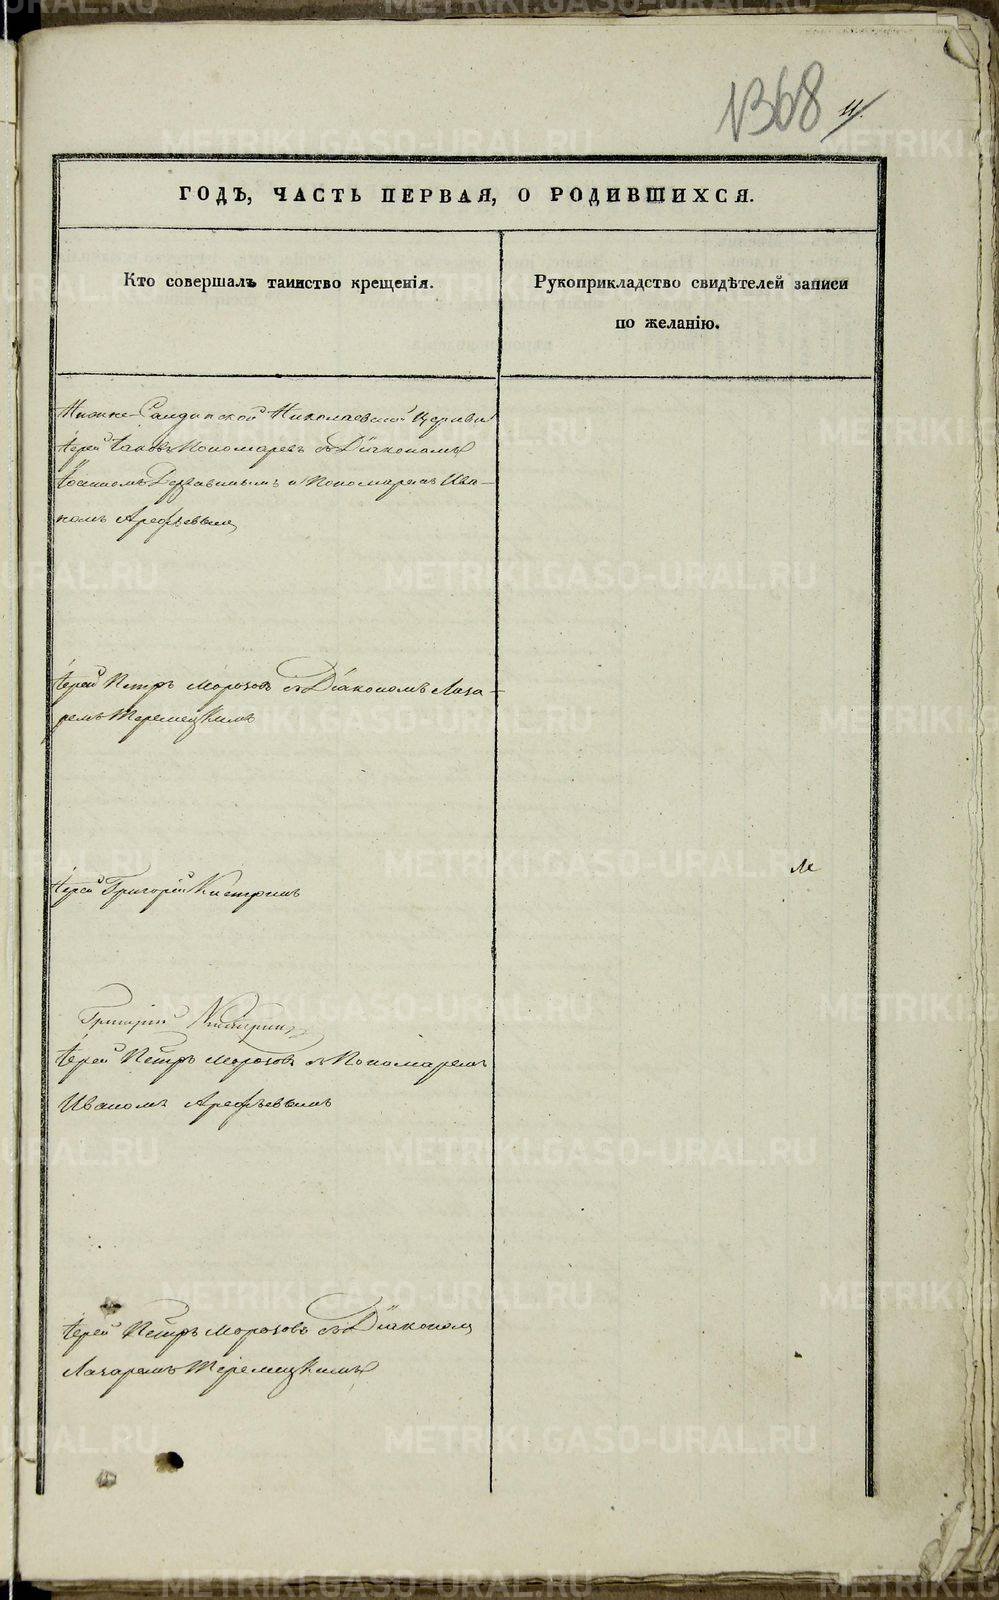 1368
11/.
ГОДЪ, ЧАСТЬ ПЕРВАЯ, О РОДИВШИХСЯ.
Кто совершалъ таинство крещенія.
Рукоприкладство свидѣтелей записи
по желанію.
Нижне-Салдинской Николаевской Церкви
Іерей Іаковъ Пономаревъ съ Діакономъ
Іоанномъ и Пономаремъ Ива-
номъ Арефьевымъ
Іерей Петръ Морозовъ съ Діакономъ Лаза-
ремъ Теремецкимъ
Іерей Григорій
Григорій
Іерей Петръ Морозовъ съ Пономаремъ
Иваномъ Арефьевымъ
Іерей Петръ Морозовъ съ Діакономъ
Лазаремъ Теремецкимъ
METRIKI.GASO-URAL.RU